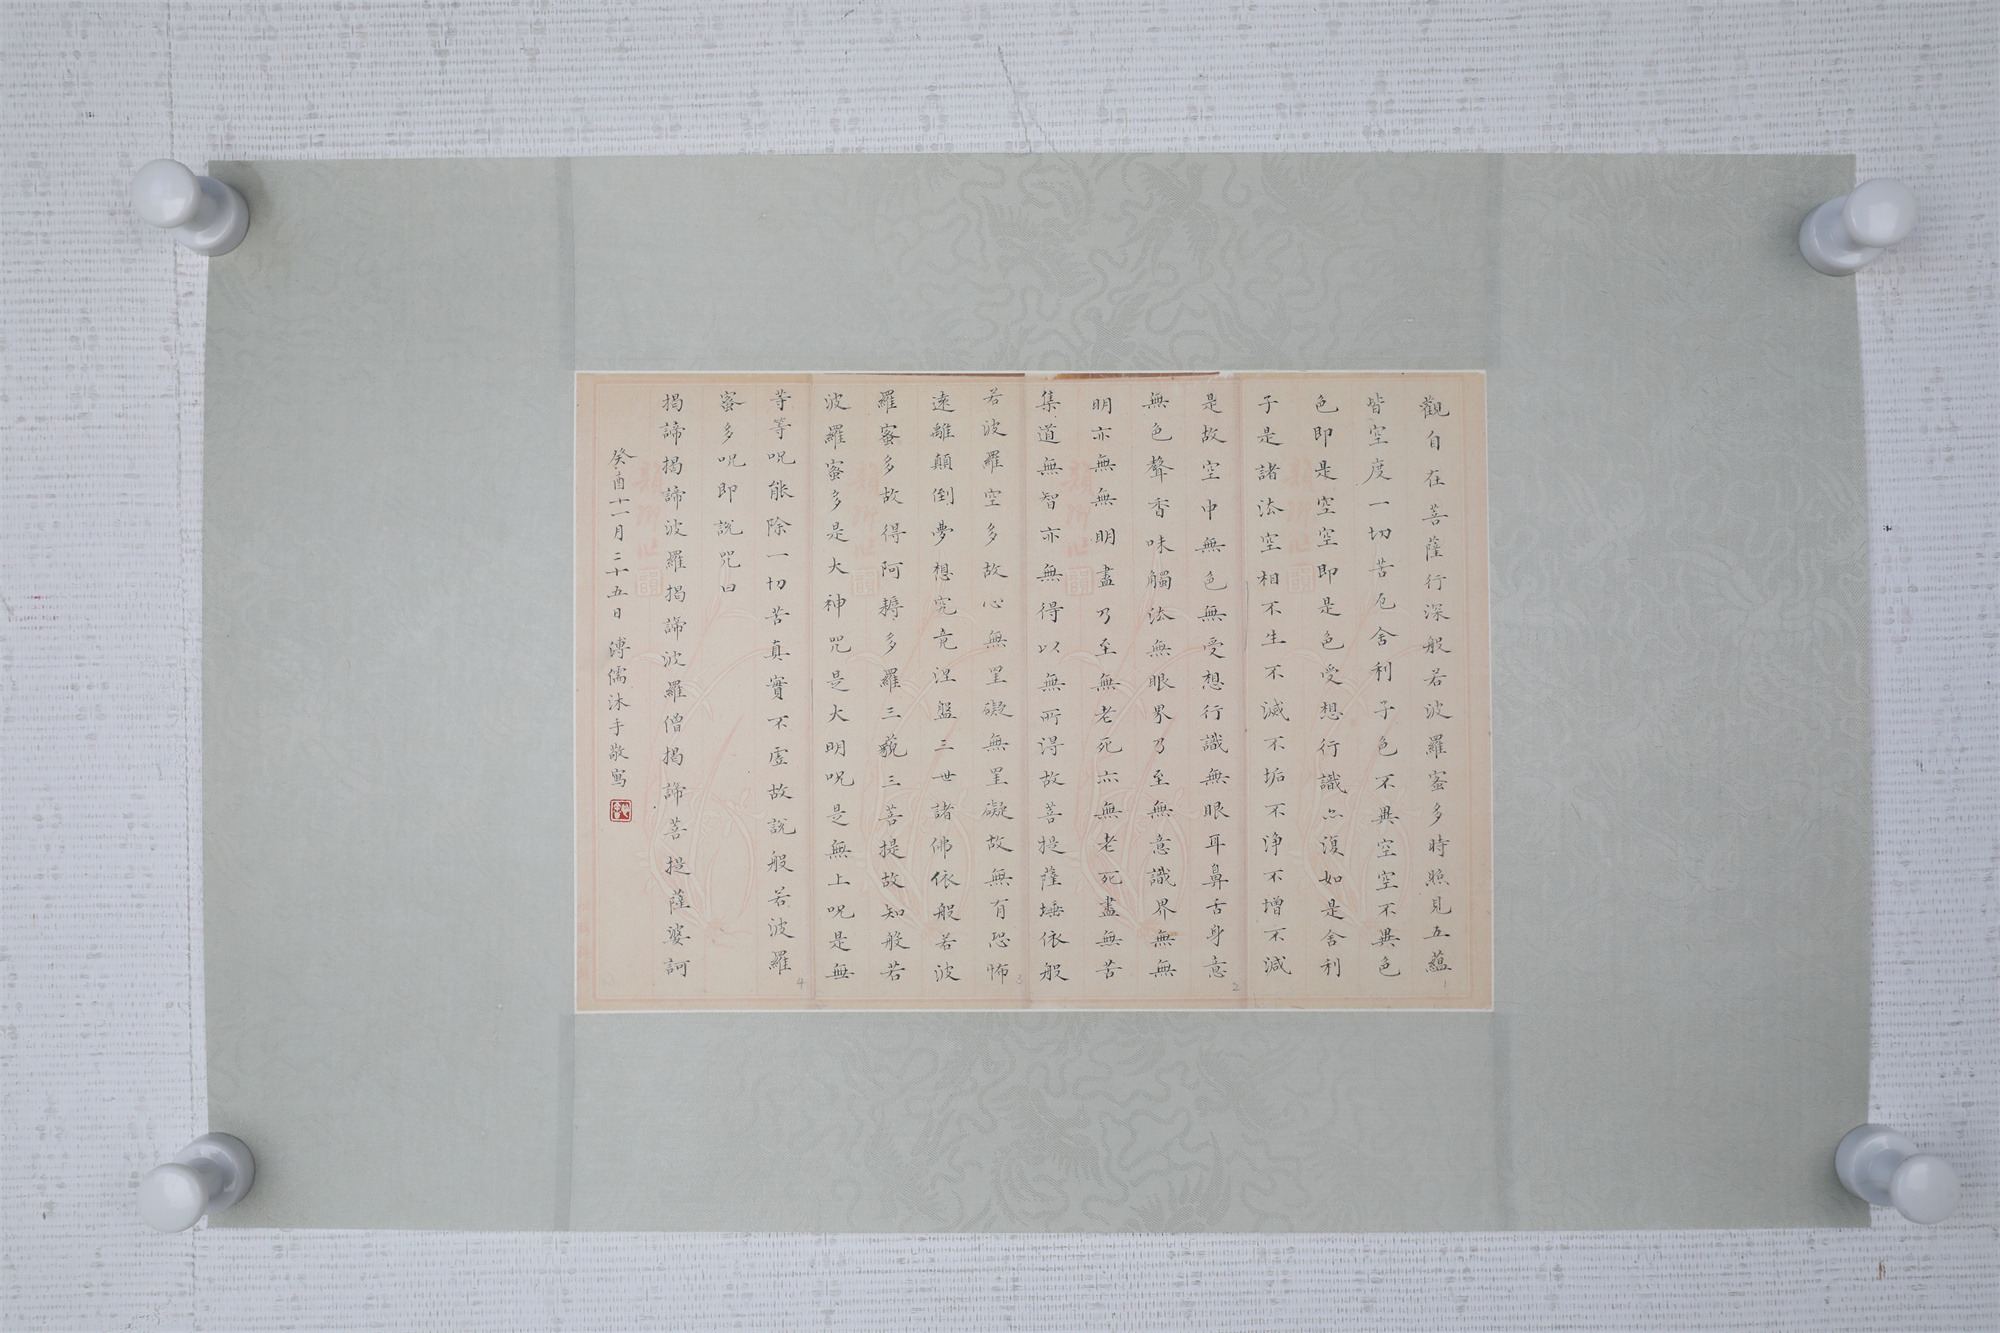 觀自在菩薩行深般若波羅蜜多時照見五蘊
皆空度一切苦厄舍利子色不異空空不異色
色即是空空即是色受想行識亦復如是舍利
子是諸法空相不生不滅不垢不淨不增不減
是故空中無色無受想行識無眼耳鼻舌身意
無色聲香味觸法無眼界乃至無意識界無無
明亦無無明盡乃至無老死亦無老死盡無苦
集道無智亦無得以無所得故菩提薩埵依般
若波羅空多故心無罣礙無罣礙故無有恐怖
遠離顛倒夢想究竟涅盤三世諸佛依般若波
羅蜜多故得阿耨多羅三藐三菩提故知般若
波羅蜜多是大神咒是大明呪是無上呪是無
等等呪能除一切苦真實不虛故說般若波羅
蜜多呪即說咒曰
揭諦揭諦波羅揭諦波羅僧揭諦菩提薩婆訶
癸酉十一月二十五日 溥儒沐手敬寫
1
2
3
4